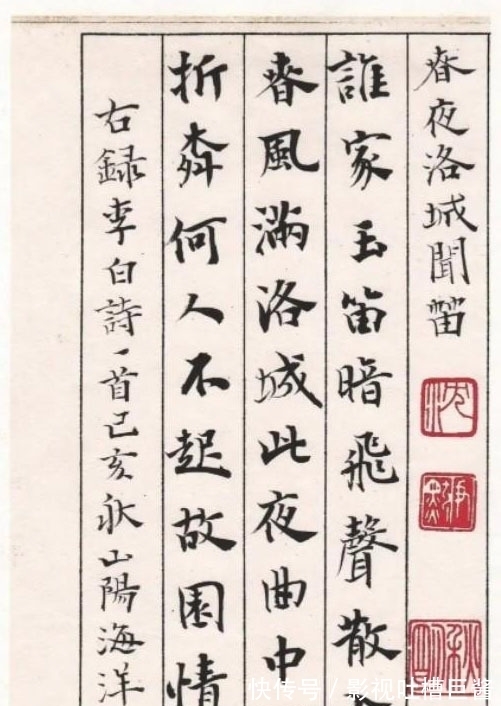 春夜洛城聞笛
誰家玉笛暗飛聲散
春風滿洛城此夜曲中
折柳何人不起故園情
右録李白詩一首己亥秋山陽海洋
快传号 / 影视吐槽巨